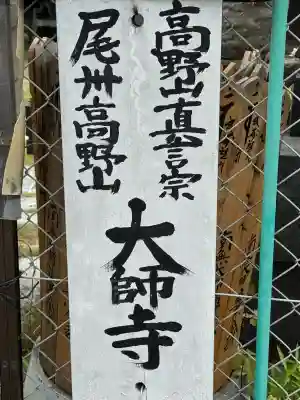 高野山真言宗
尾州高野山
大師寺